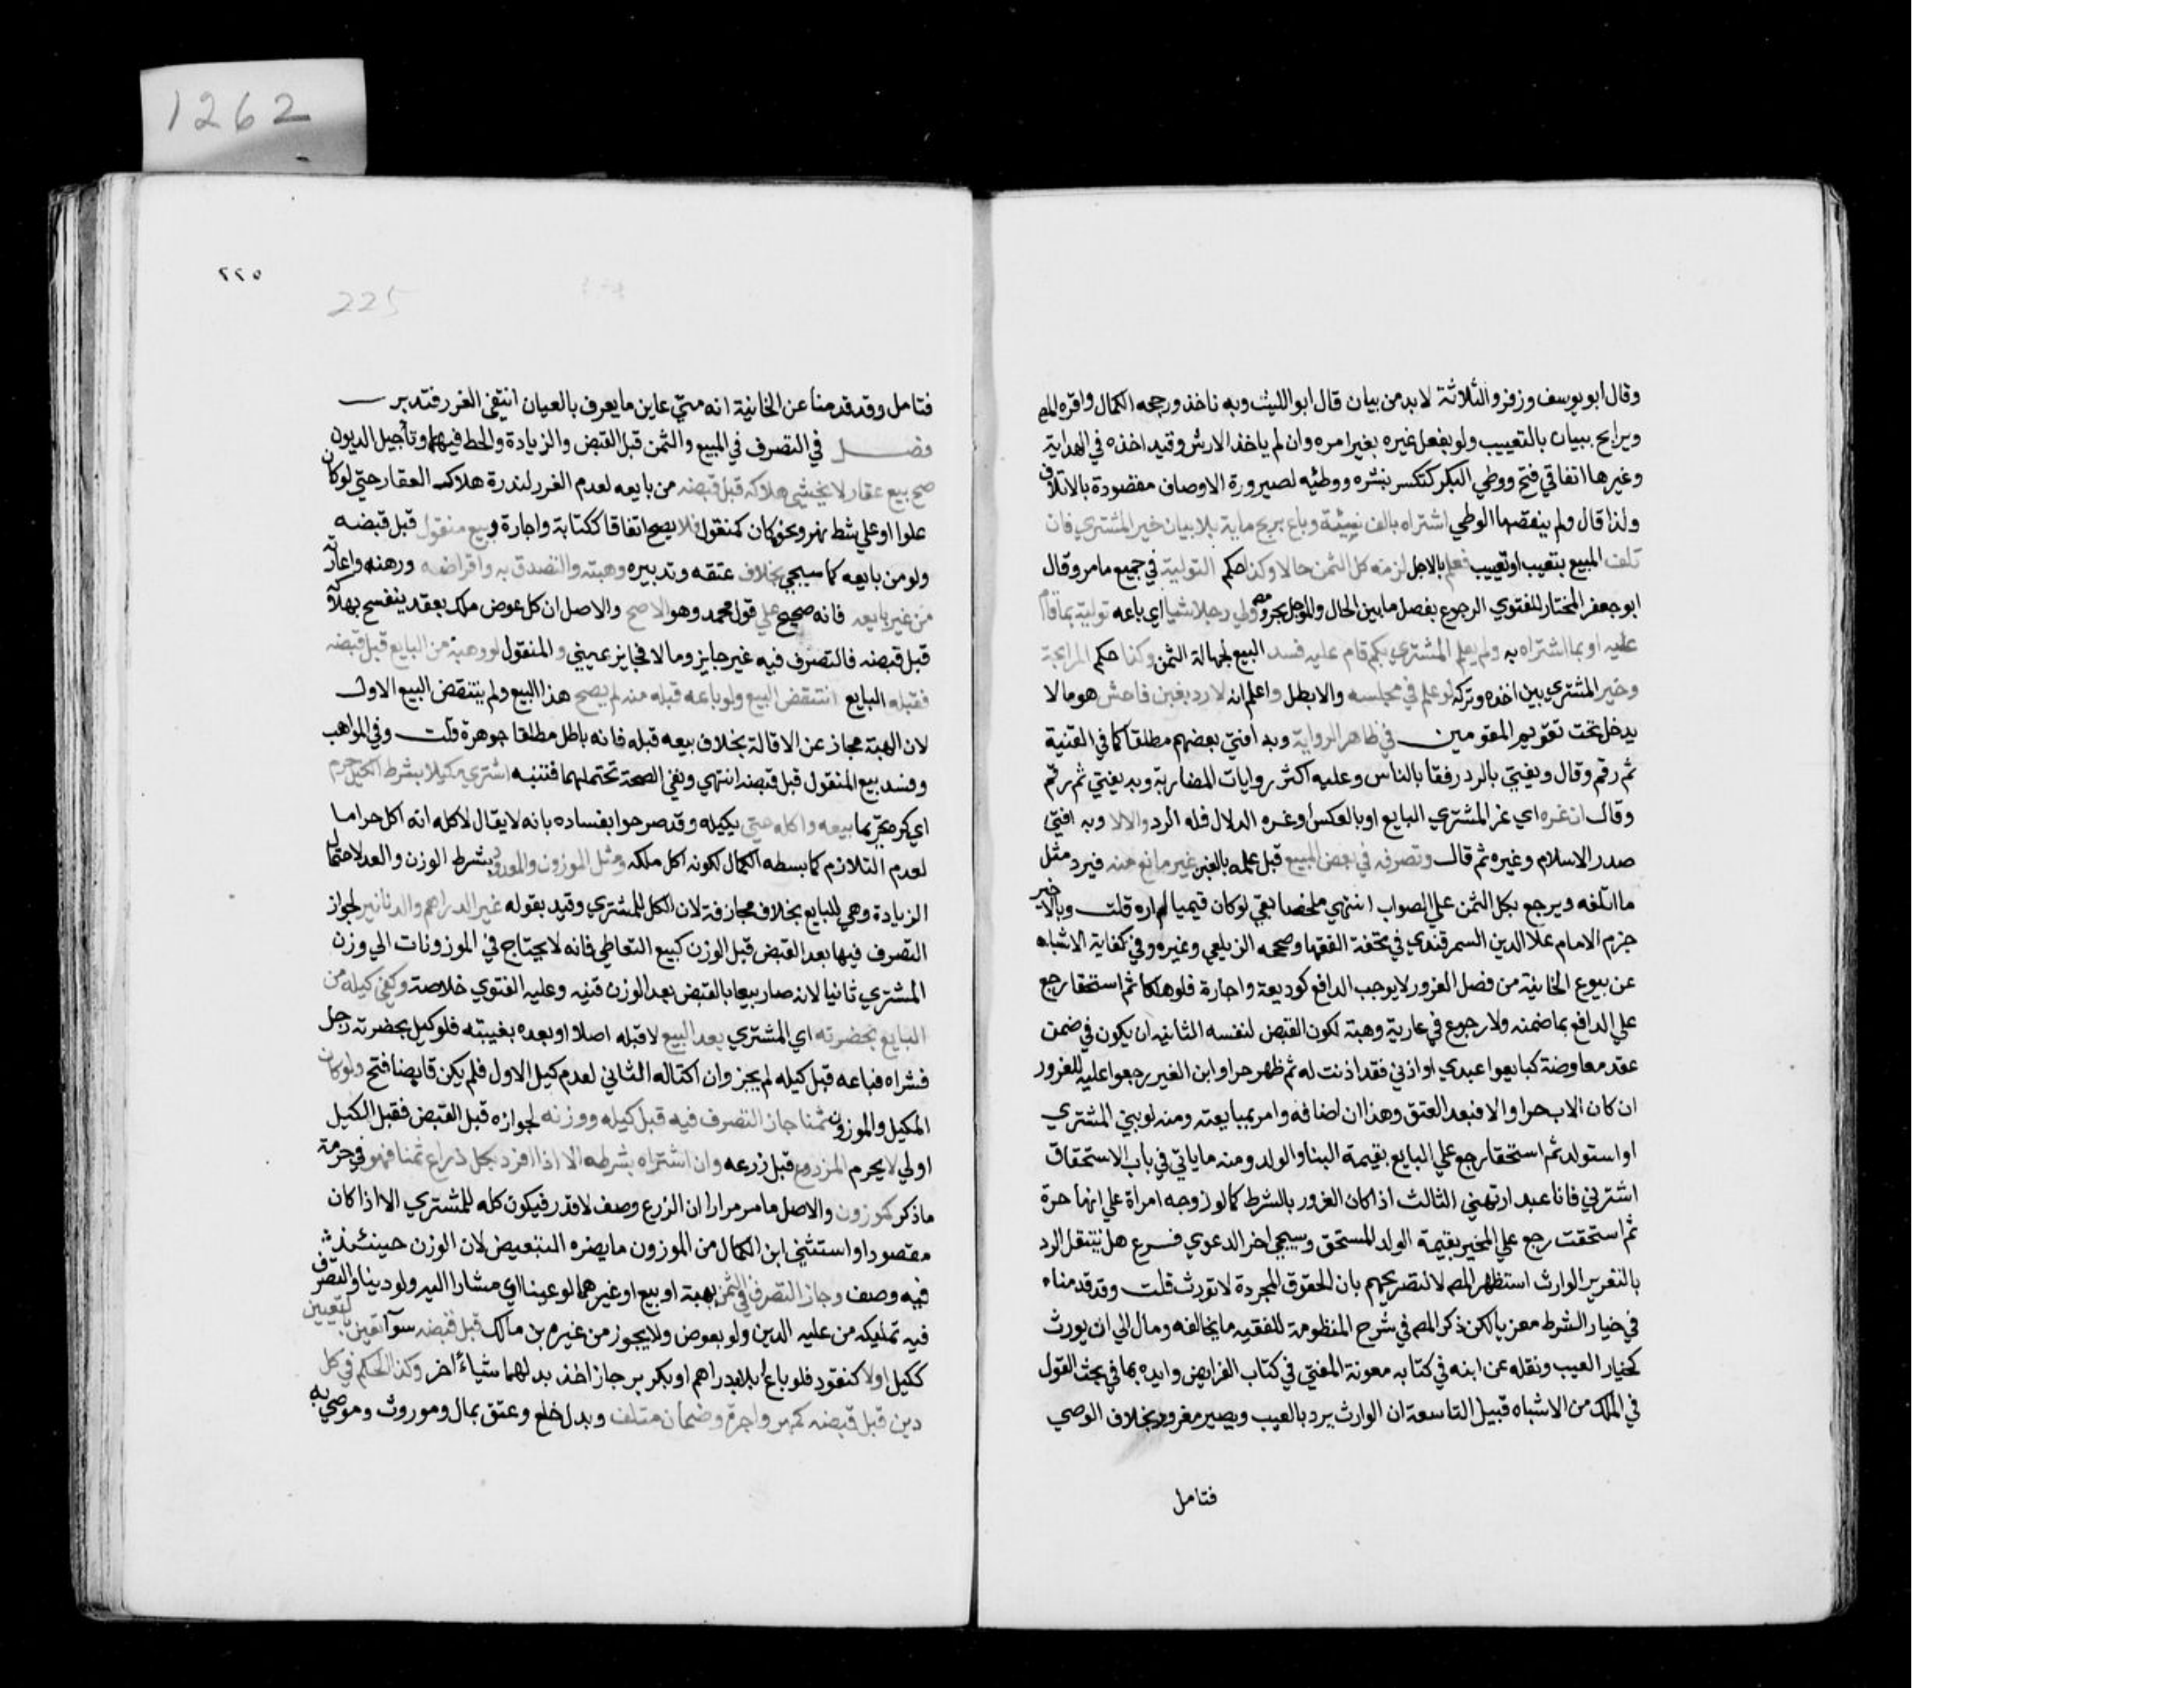 1262
وقال ابو يوسف وزفر والثلاثة لابد من بيان قال ابو الليث وبه ناخذ ورجحه الكمال واقره المص
ويرابح ببيان بالتعييب ولو بفعل غيره بغير امره وان لم ياخذ الارش وقيد اخذه في الهداية
وغيرها اتفاقي فتح ووطي البكر كتكسر بنشره ووطئيه لصيرورة الاوصاف مقصودة بالاتلاف
ولذا قال ولم ينقصها الوطي اشتراه بالف نسئة وباع بربح ماية بلا بيان خير المشتري فان
تلف المبيع بتعيب او تعييب فعلم بالاجل لزمه كل الثمن حالا وكذا حكم التولية في جميع ما مر وقال
ابو جعفر المختار للفتوي الرجوع بفضل ما بين الحال والموجل بحر ومص ولي رجلا شيا اي باعه تولية بما قام
عليه او بما اشتراه به ولم يعلم المشتري بكم قام عليه فسد البيع لجهالة الثمن وكذا حكم المرابحة
وخير المشتري بين اخذه وتركه لو علم في مجلسه والا بطل واعلم انه لا رد بغبن فاحش هو ما لا
يدخل تحت تقويم المقومين في ظاهر الرواية وبه افتي بعضهم مطلقا كما في القنية
ثم رقم وقال ويفتي بالرد رفقا بالناس وعليه اكثر روايات المضاربة وبه يفتي ثم رقم
وقال ان غره اي غر المشتري البايع او بالعكس او غره الدلال فله الرد والا لا وبه افتي
صدر الاسلام وغيره ثم قال وتصرفه في بعض المبيع قبل علمه بالغبن غير مانع منه فيرد مثل
ما اتلفه ويرجع بكل الثمن علي الصواب انتهي ملخصا بقي لو كان قيميا لم اره قلت وبالاخير
جزم الامام علا الدين السمرقندي في تحفة الفقها وصححه الزيلعي وغيره وفي كفاية الاشباه
عن بيوع الخانية من فصل الغرور لا يوجب الدافع كوديعة واجارة فلو هلكا ثم استحقا رجع
علي الدافع بما ضمنه ولا رجوع في عارية وهبة لكون القبض لنفسه الثانيه ان يكون في ضمن
عقد معاوضة كبايعوا عبدي او اذني فقد اذنت له ثم ظهر حرا او ابن الغير رجعوا عليه للغرور
ان كان الاب حرا والا فبعد العتق وهذا ان اضافه وامر بمبايعته ومنه لو بني المشتري
او استولد ثم استحقا رجع علي البايع بقيمة البنا والولد ومنه ما ياتي في باب الاستحقاق
اشترني فانا عبد ارتهني الثالث اذا كان الغرور بالشرط كما لو زوجه امراة علي انها حرة
ثم استحقت رجع علي المخبر بقيمة الولد للمستحق وسيجي اخر الدعوي فرع هل ينتقل الرد
بالتغرير الوارث استظهر المص لا لتصريحهم بان الحقوق المجردة لا تورث قلت وقد قدمناه
في خيار الشرط معزيا لكن ذكر المص في شرح المنظومة للفقيه ما يخالفه ومال الي ان يورث
كخيار العيب ونقله عن ابنه في كتابه معونة المفتي في كتاب الفرايض وايده بما في بحث القول
في الملك من الاشباه قبيل التاسعة ان الوارث يرد بالعيب ويصير مغرورا بخلاف الوصي
فتامل
٢٢٥
225
فتامل وقد قدمنا عن الخانية انه متي عاين ما يعرف بالعيان انتفي الغرر فتدبر
فصل في التصرف في المبيع والثمن قبل القبض والزيادة والحط فيهما وتأجيل الديون
صح بيع عقار لا يخشي هلاكه قبل قبضه من بايعه لعدم الغرر لندرة هلاك العقار حتي لو كان
علوا او علي شط نهر ونحوه كان كمنقول فلا يصح اتفاقا ككتابة واجارة وبيع منقول قبل قبضه
ولو من بايعه كما سيجي بخلاف عتقه وتدبيره وهبته والتصدق به واقراضه ورهنه واعارته
من غير بايعه فانه صحيح علي قول محمد وهو الاصح والاصل ان كل عوض ملك بعقد ينفسخ بهلاكه
قبل قبضه فالتصرف فيه غير جايز وما لا فجايز عيني والمنقول لو وهبه من البايع قبل قبضه
فقبله البايع انتقض البيع ولو باعه قبله منه لم يصح هذا البيع ولم ينتقض البيع الاول
لان الهبة مجاز عن الاقالة بخلاف بيعه قبله فانه باطل مطلقا جوهرة قلت وفي المواهب
وفسد بيع المنقول قبل قبضه انتهي ونفي الصحة تحتملهما فتنبه اشتري مكيلا بشرط الكيل حرم
اي كره تحريما بيعه واكله حتي يكيله وقد صرحوا بفساده بانه لا يقال لاكله انه اكل حراما
لعدم التلازم كما بسطه الكمال لكونه اكل ملكه ومثل الموزون والمعدود بشرط الوزن والعد لاحتمال
الزيادة وهي للبايع بخلاف مجازفة لان الكل للمشتري وقيد بقوله غير الدراهم والدنانير لجواز
التصرف فيها بعد القبض قبل الوزن كبيع التعاطي فانه لا يحتاج في الموزونات الي وزن
المشتري ثانيا لانه صار بيعا بالقبض بعد الوزن قنيه وعليه الفتوي خلاصة وكفي كيله من
البايع بحضرته اي المشتري بعد البيع لا قبله اصلا او بعده بغيبته فلو كيل بحضرته رجل
فشراه فباعه قبل كيله لم يجز وان اكتاله الثاني لعدم كيل الاول فلم يكن قابضا فتح ولو كان
المكيل والموزون ثمنا جاز التصرف فيه قبل كيله ووزنه لجوازه قبل القبض فقبل الكيل
اولي لا يحرم المزروع قبل زرعه وان اشتراه بشرطه الا اذا افرد بكل ذراع ثمنا فهو في حرمة
ما ذكر كموزون والاصل ما مر مرارا ان الزرع وصف لا قدر فيكون كله للمشتري الا اذا كان
مقصودا واستثني ابن الكمال من الموزون ما يضره التبعيض لان الوزن حينئذ
فيه وصف وجاز التصرف في الثمن بهبة او بيع او غيرهما لو عينا اي مشارا اليه ولو دينا والتصرف
فيه تمليكه من عليه الدين ولو بعوض ولا يجوز من غيره بن مالك قبل قبضه سوا تعين بالتعيين
ككيل اولا كنقود فلو باع ابلا بدراهم او بكر بر جاز اخذ بدلهما شياء اخر وكذا الحكم في كل
دين قبل قبضه كمهر واجرة وضمان متلف وبدل خلع وعتق بمال وموروث وموصي به